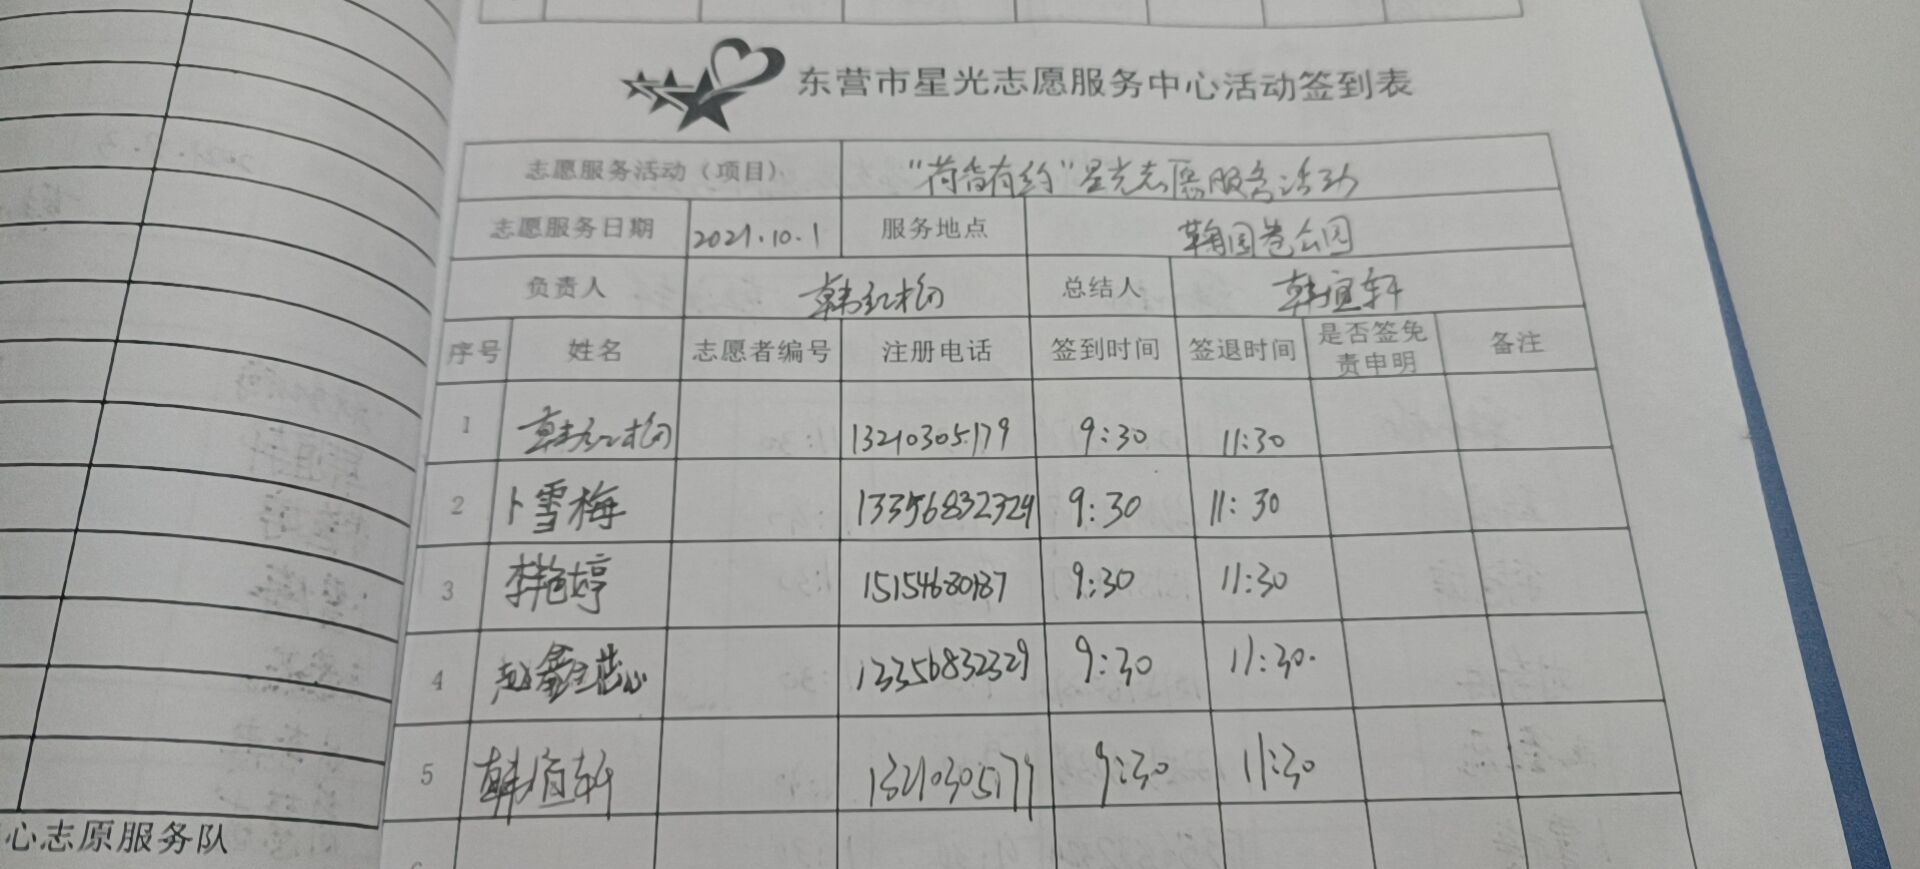 东营市星光志愿服务中心活动签到表
志愿服务活动（项目） “荷香有约”星光志愿服务活动
志愿服务日期 2021.10.1 服务地点 公园
负责人 韩红梅 总结人 韩宜轩
序号 姓名 志愿者编号 注册电话 签到时间 签退时间 是否签免责申明 备注
1 韩红梅 13210305179 9:30 11:30
2 卜雪梅 13356832329 9:30 11:30
3 李艳婷 15154680187 9:30 11:30
4 赵 13356832329 9:30 11:30.
5 韩宜轩 13210305179 9:30 11:30
心志原服务队